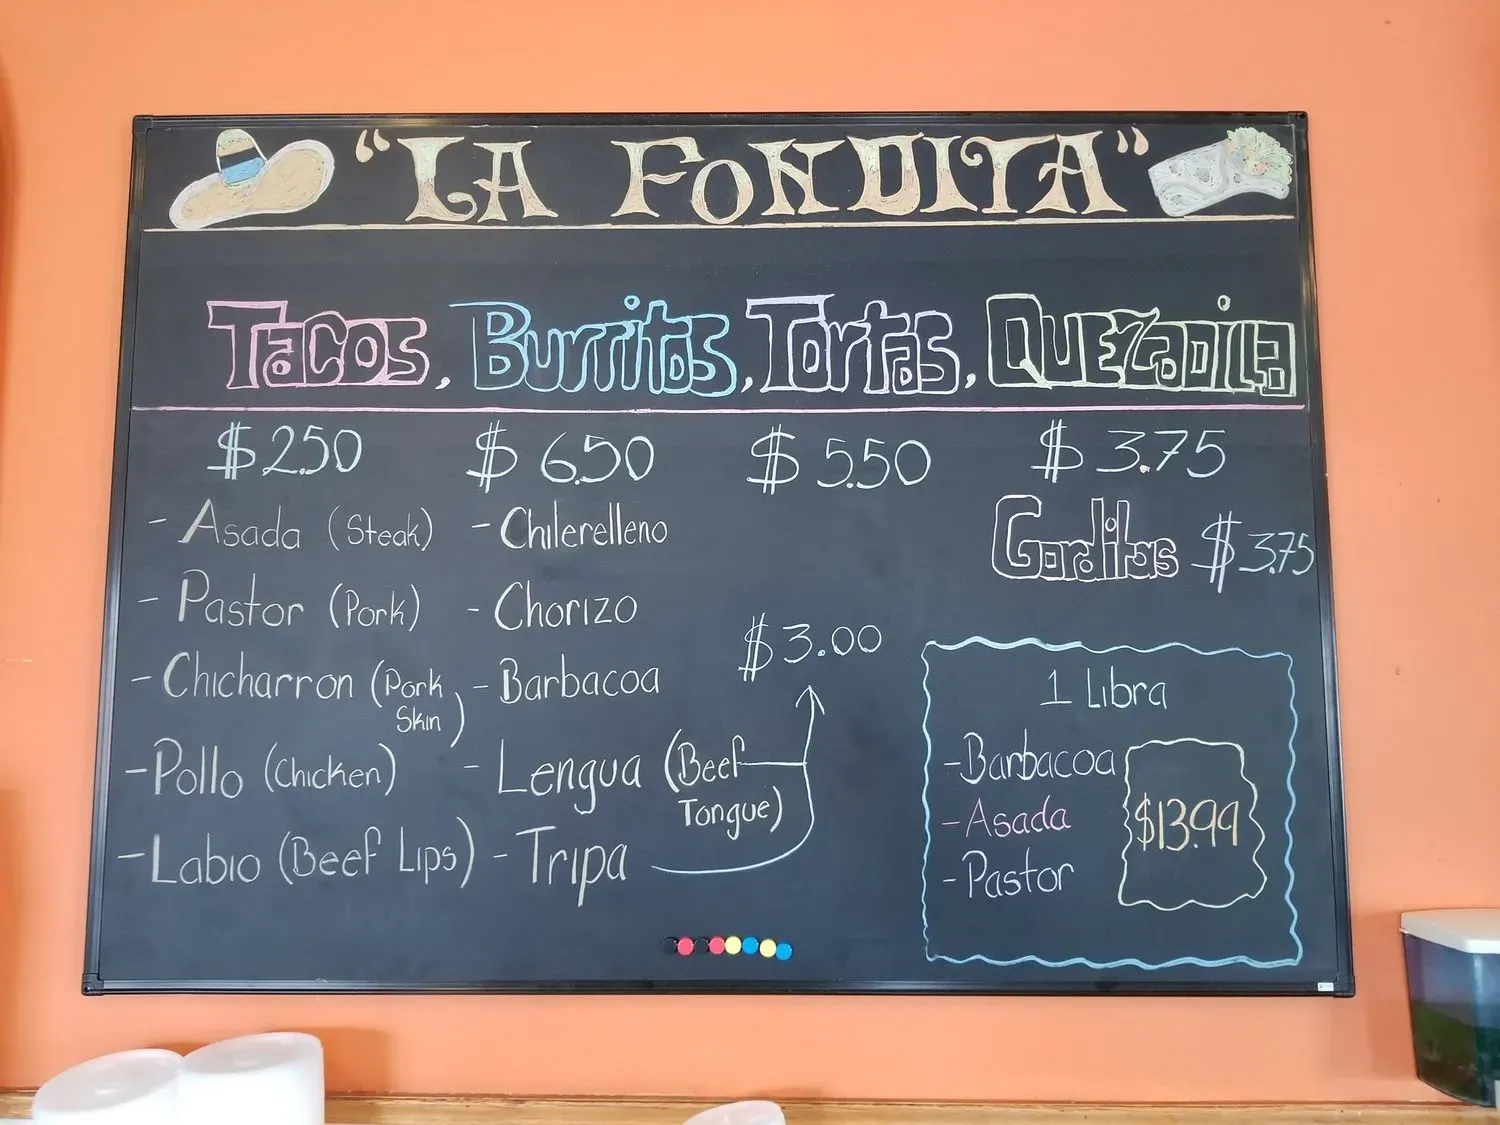 "LA FONDITA"
Tacos, Burritos, Tortas, Quezadilla
$2.50 $6.50 $5.50 $3.75
- Asada (Steak) - Chilerelleno
Gorditas $3.75
- Pastor (Pork) - Chorizo
$3.00
- Chicharron (Pork Skin) - Barbacoa
- Pollo (Chicken) - Lengua (Beef
Tongue)
- Labio (Beef Lips) - Tripa
1 Libra
- Barbacoa
- Asada $13.99
- Pastor